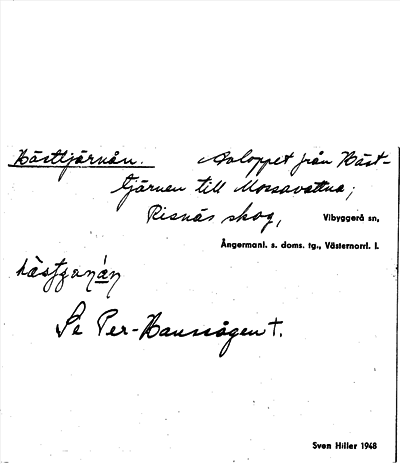 Hästtjärnån. Avloppet från Häst-
tjärnen till Mossavattna;
Risnäs skog, Vibyggerå sn,
Ångermanl. s. doms. tg., Västernorrl. l.
Se Per-Hanssågen †.
Sven Hiller 1948